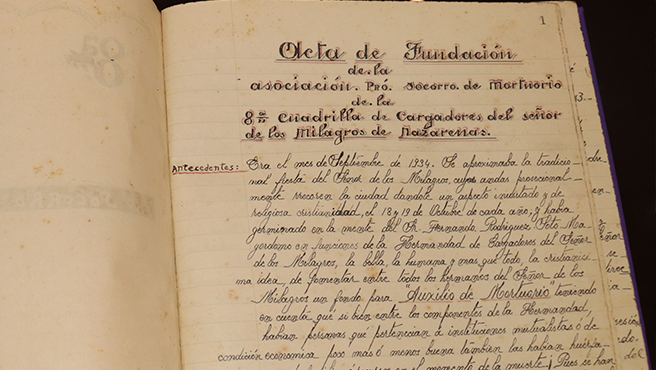 1
Acta de Fundación
de.la
asociación. Pró. Socorro. de Mortuorio
de.la
8ª Cuadrilla de Cargadores del señor
de los Milagros de Nazarenas.
Antecedentes: Era el mes de Septiembre de 1934. Se aproximaba la tradicio-
nal fiesta del Señor de los Milagros, cuyas andas procesional-
mente recoren la ciudad dandole un aspecto inusitado y de
religiosa cristiandidad, el 18 y 19 de Octubre de cada año, y habia
germinado en la mente del Sr. Fernando Rodriguez Soto Ma-
yordomo en funciones de la Hermandad de Cargadores del Señor
de los Milagros, la bella, la humana y mas que todo, la cristianici-
ma idea, de fomentar entre todos los hermanos del Señor de los
Milagros un fondo para "Auxilio de Mortuorio" teniendo
en cuenta que si bien entre los componentes de la Hermandad,
habian personas qué pertenecian a instituciones mutualistas ó de
condición economica poco más ó menos buena tambien las habian
en el momento de la muerte; Pues se han